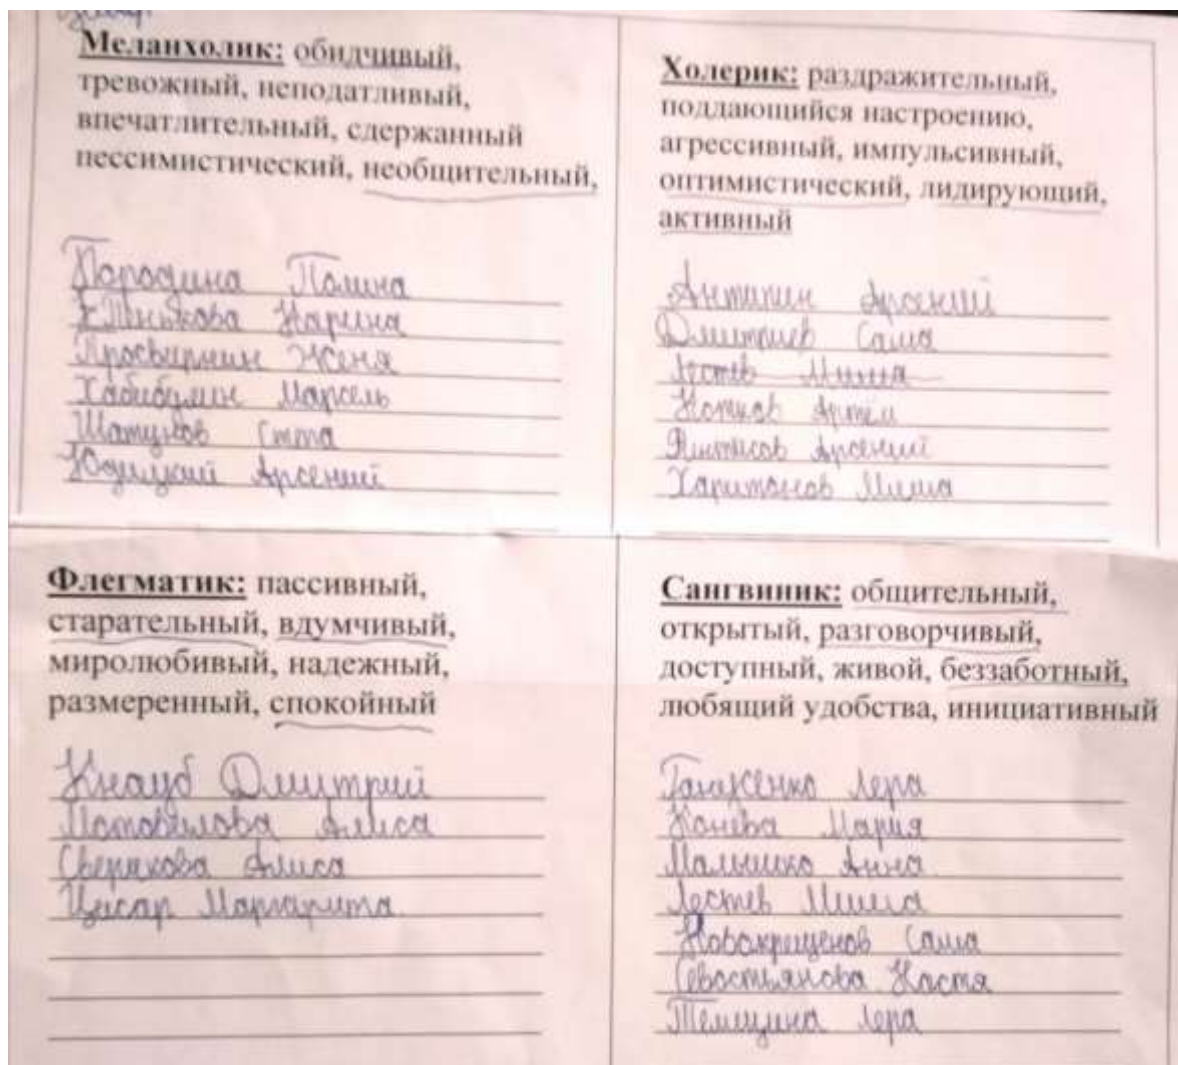 Меланхолик: обидчивый,
тревожный, неподатливый,
впечатлительный, сдержанный
пессимистический, необщительный,
Породина Полина
Карина
Просвирнин Женя
Хабибулин Марсель
Шатунов
Юдицкий Арсений
Холерик: раздражительный,
поддающийся настроению,
агрессивный, импульсивный,
оптимистический, лидирующий,
активный
Антипин Арсений
Дмитриев Саша
Лестев Миша
Котков Артём
Арсений
Харитонов Миша
Флегматик: пассивный,
старательный, вдумчивый,
миролюбивый, надежный,
размеренный, спокойный
Кнауб Дмитрий
Мотовилова Алиса
Алиса
Цисар Маргарита
Сангвиник: общительный,
открытый, разговорчивый,
доступный, живой, беззаботный,
любящий удобства, инициативный
Лера
Конева Мария
Малышко Анна
Лестев Миша
Новокрещенов Саша
Севостьянова Настя
Темицина Лера